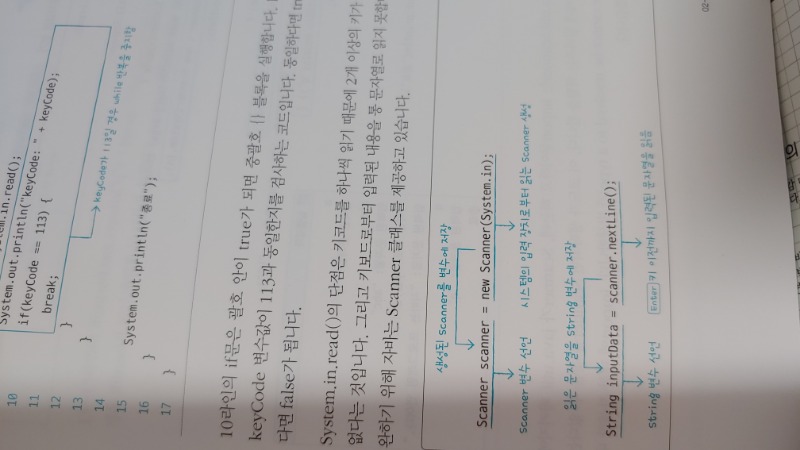 10 System.in.read();
11 System.out.println("keyCode: " + keyCode);
12 if(keyCode == 113) {
13 break;
14 } keyCode가 113일 경우 while 반복을 중지함
15 }
16 System.out.println("종료");
17 }
}
10라인의 if문은 괄호 안이 true가 되면 중괄호 {} 블록을 실행합니다.
keyCode 변수값이 113과 동일한지를 검사하는 코드입니다. 동일하다면
다면 false가 됩니다.
System.in.read()의 단점은 키코드를 하나씩 읽기 때문에 2개 이상의 키가
없다는 것입니다. 그리고 키보드로부터 입력된 내용을 통 문자열로 읽지 못한
완하기 위해 자바는 Scanner 클래스를 제공하고 있습니다.
생성된 Scanner를 변수에 저장
Scanner scanner = new Scanner(System.in);
Scanner 변수 선언 시스템의 입력 장치로부터 읽는 Scanner 생성
읽은 문자열을 String 변수에 저장
String inputData = scanner.nextLine();
String 변수 선언 Enter 키 이전까지 입력된 문자열을 읽음
02-